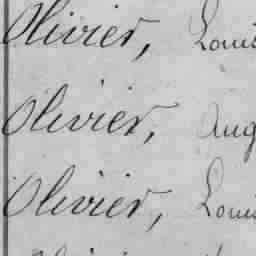 Olivier, Loui
Olivier, Aug
Olivier, Loui